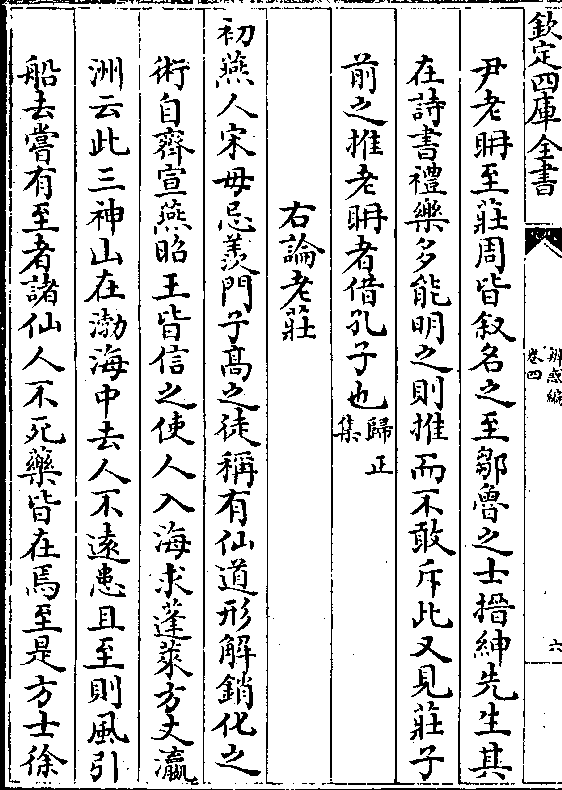 欽定四庫全書
辨惑編
卷四
六
尹老耼至莊周皆叙名之至鄒魯之士搢紳先生其
在詩書禮樂多能明之則推而不敢斥此又見莊子
前之推老耼者借孔子也歸正
集
右論老莊
初燕人宋毋忌羨門子髙之徒稱有仙道形解銷化之
術自齊宣燕昭王皆信之使人入海求蓬萊方丈瀛
洲云此三神山在渤海中去人不逺患且至則風引
船去嘗有至者諸仙人不死藥皆在焉至是方士徐